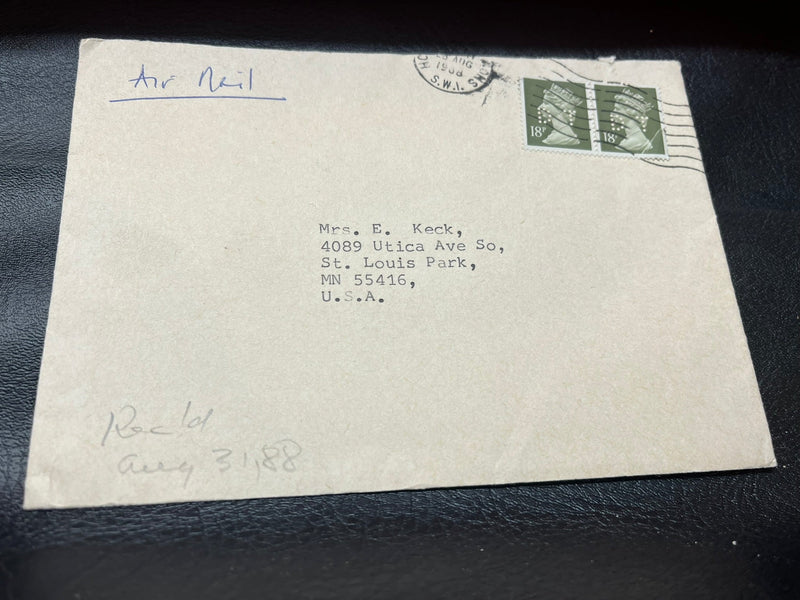 Air Mail
AUG
1988
S.W.1.
18P
18P
Mrs. E. Keck,
4089 Utica Ave So,
St. Louis Park,
MN 55416,
U.S.A.
Rec'd
Aug 31, 88